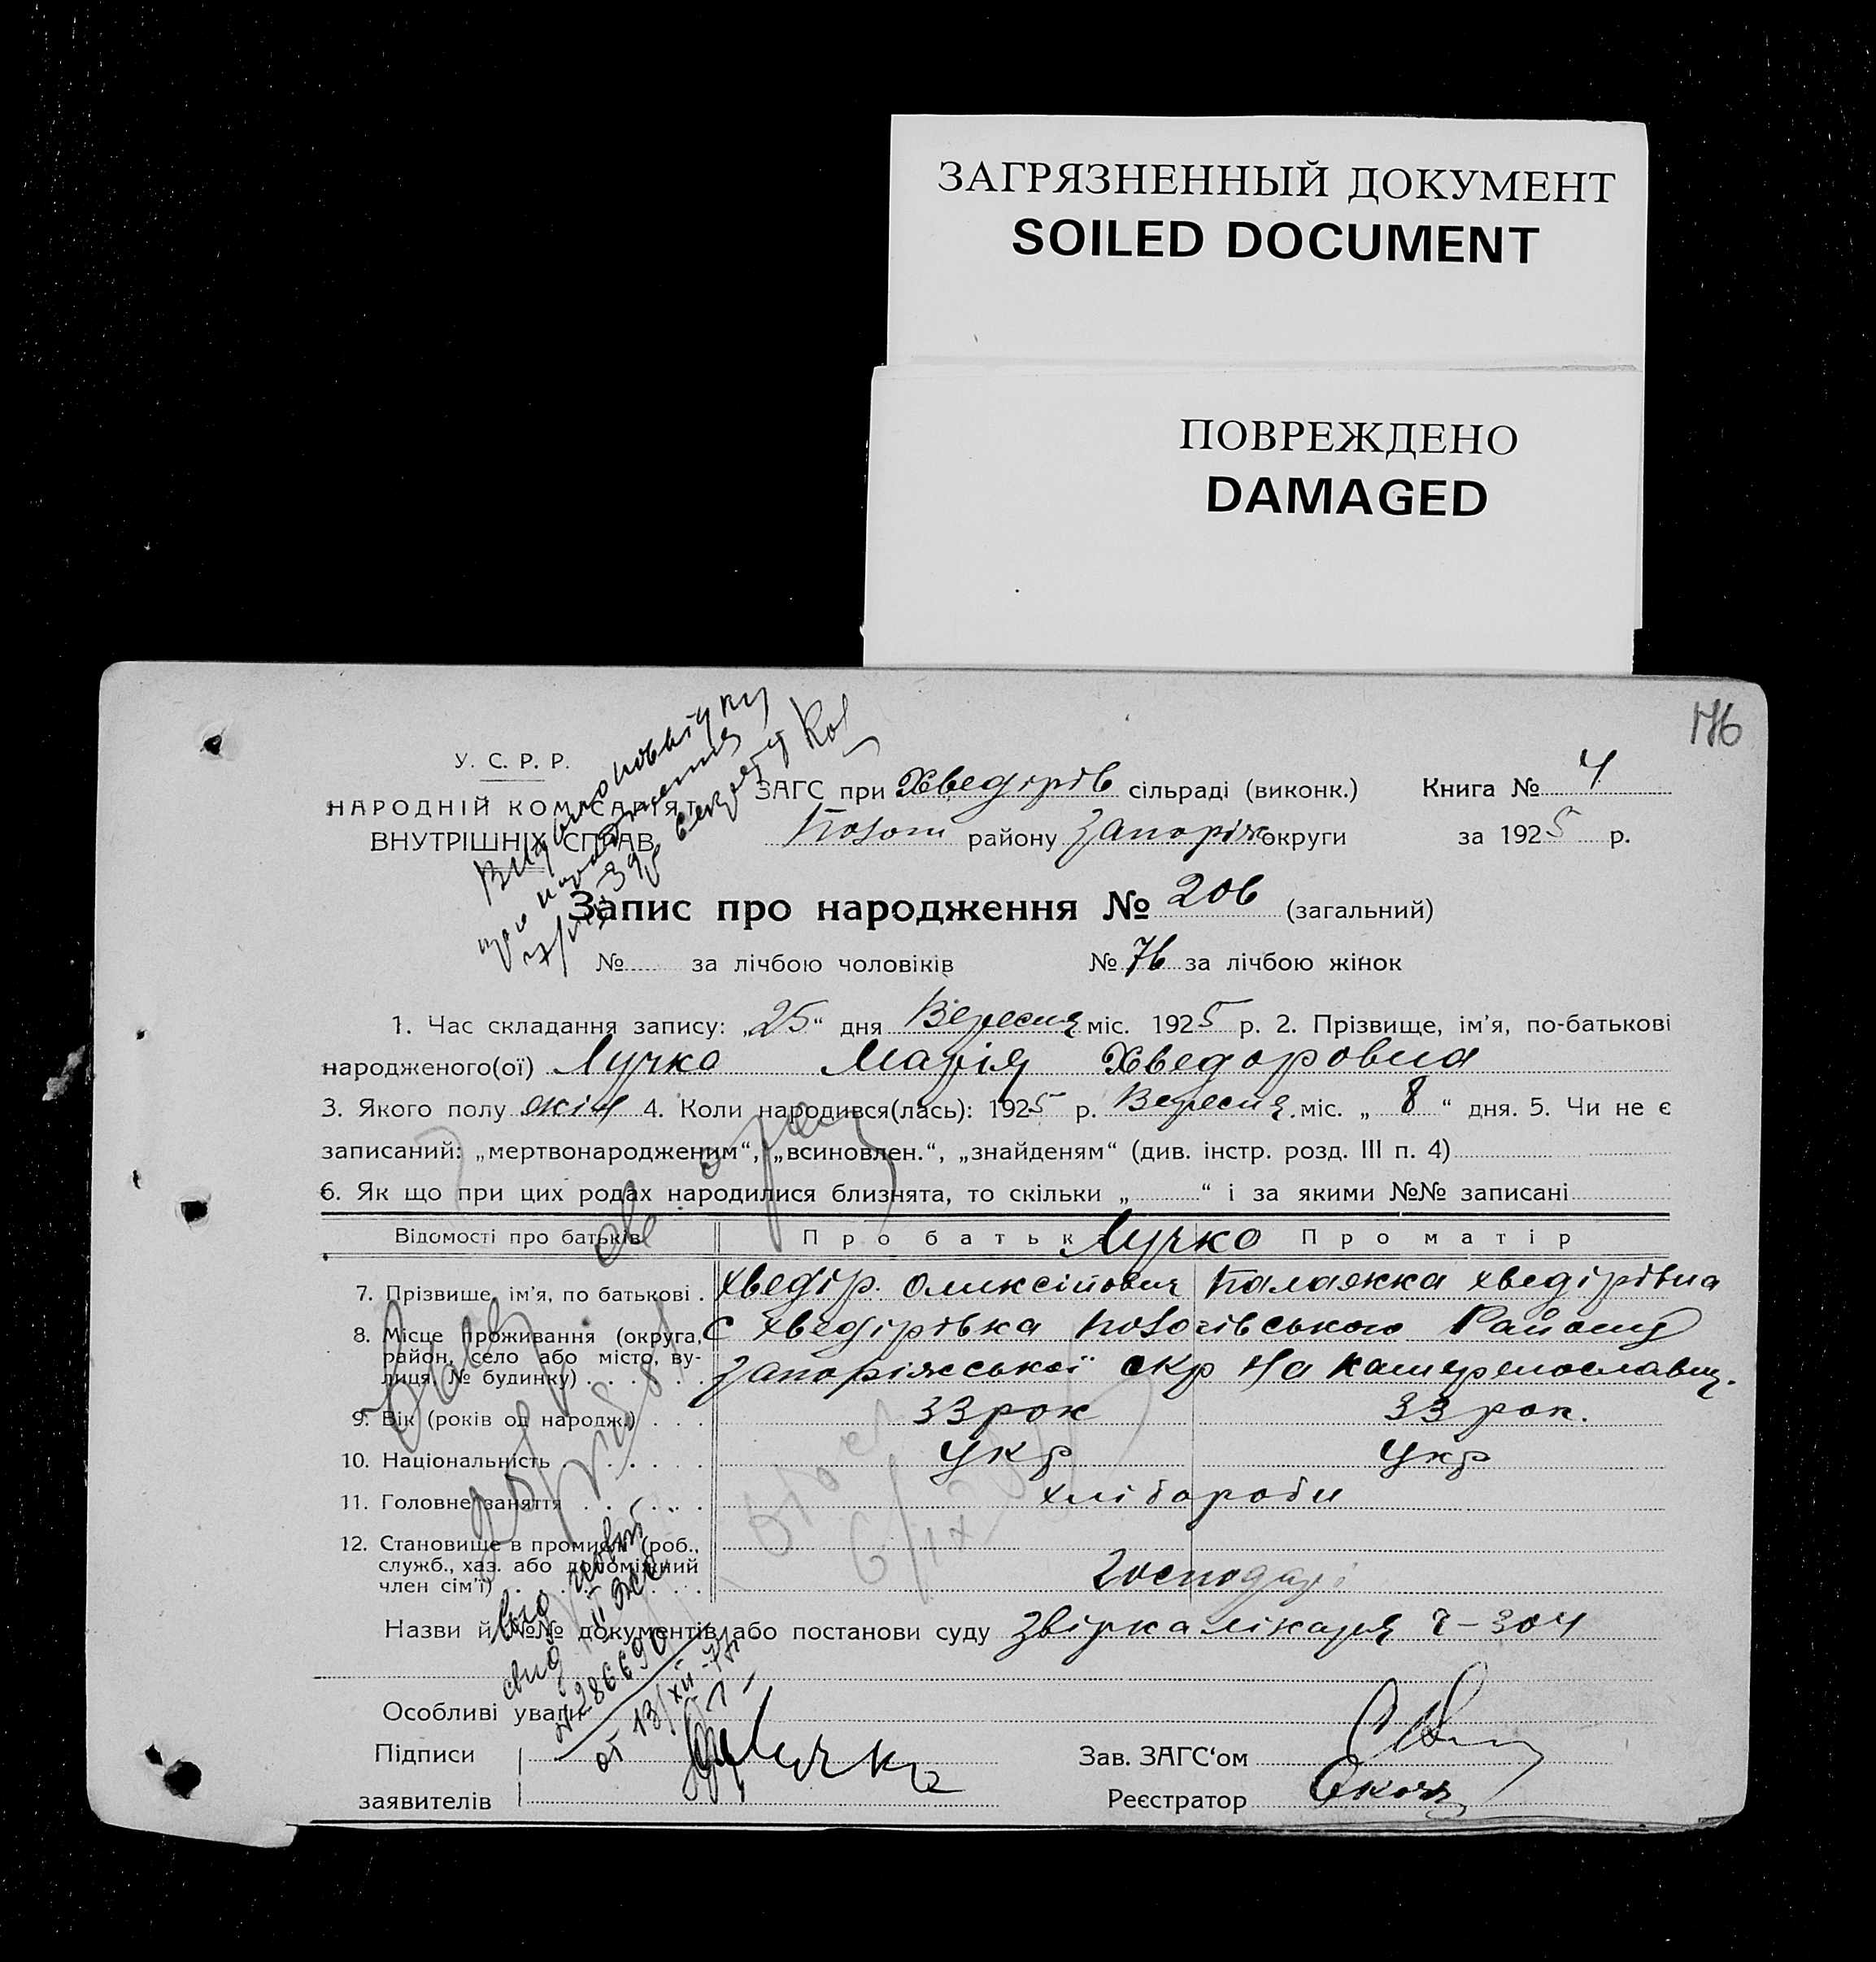 ЗАГРЯЗНЕННЫЙ ДОКУМЕНТ
SOILED DOCUMENT
ПОВРЕЖДЕНО
DAMAGED
176
У. С. Р. Р.
НАРОДНІЙ КОМІСАРІЯТ
ВНУТРІШНІХ СПРАВ
ЗАГС при Хведірів сільраді (виконк.) Книга № 4
району Запоріж округи за 1925 р.
Запис про народження № 206 (загальний)
№ за лічбою чоловіків № 76 за лічбою жінок
1. Час складання запису: „25“ дня Вересня міс. 1925 р. 2. Прізвище, ім'я, по-батькові
народженого(ої) Лучко Марія Хведоровна
3. Якого полу жін 4. Коли народився(лась): 1925 р. Вересня міс. „ 8 “ дня. 5. Чи не є
записаний: „мертвонародженим“, „всиновлен.“, „знайденям“ (див. інстр. розд. III п. 4)
6. Як що при цих родах народилися близнята, то скільки „ “ і за якими №№ записані
Відомості про батьків Про батька Лучко Про матір
7. Прізвище, ім'я, по батькові . Хведір Оликсійович Палажка Хведірівна
8. Місце проживання (округа, район, село або місто, вулиця, № будинку) С Хведірівка Району
Запоріжської окр На Катеренославщ.
9. Вік (років од народж.) . . . 33 рок 33 рок.
10. Національність . . . . . . Укр Укр
11. Головне заняття . . . . . . хлібороби
12. Становище в промислі (роб.,
служб., хаз. або допоміжний
член сім'ї) . . . . . . . господарі
Назви й №№ документів або постанови суду Звірка лікаря 304
Особливі уваги
№ 286690
от 13/XII
Підписи Лучко Зав. ЗАГС‘ом
заявителів Реєстратор